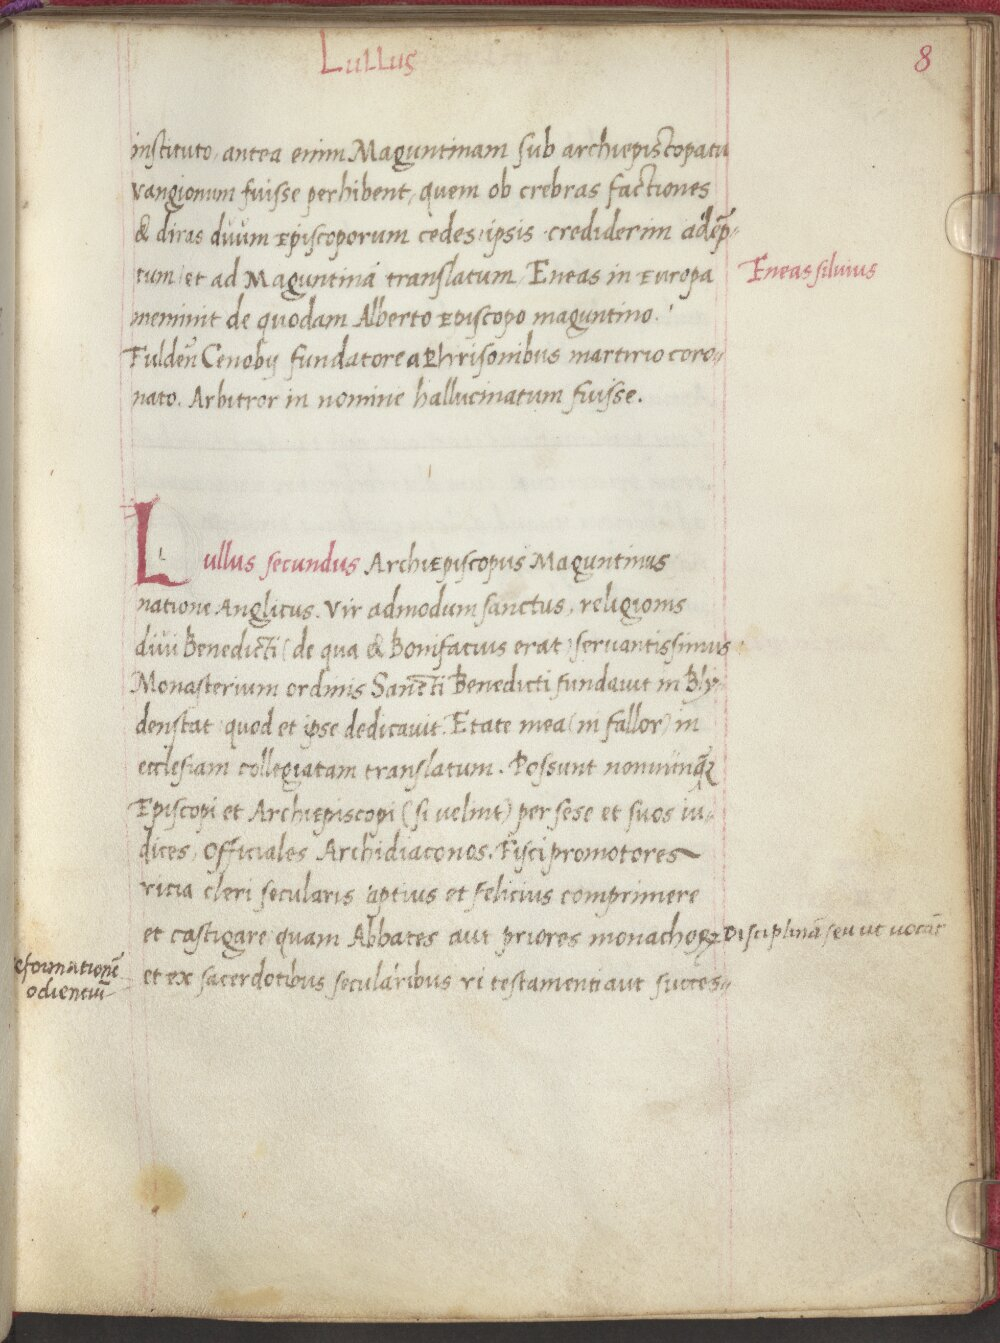 Lullus
8
instituto, antea enim Maguntinam sub archiepiscopatu
vangionum fuisse perhibent, quem ob crebras factiones
& diras duum Episcoporum cedes, ipsis crediderim adēp-
tum, et ad Maguntinā translatum, Eneas in Europa
Eneas siluius
meminit de quodam Alberto Episcopo maguntino.
Fuldeñ Cenobij fundatore a Phrisonibus martirio coro-
nato. Arbitror in nomine hallucinatum fuisse.
Lullus secundus ArchiEpiscopus Maguntinus
natione Anglicus. Vir admodum sanctus, religionis
diui Benedicti (de qua & Bonifacius erat) seruantissimus
Monasterium ordinis Sancti Benedicti fundauit in Bly-
denstat quod et ipse dedicauit. Etate mea (ni fallor) in
ecclesiam collegiatam translatum. Possunt nonnunqꝫ
Episcopi et Archiepiscopi (si velint) per sese et suos iu-
dices, Officiales Archidiaconos. Fisci promotores
vicia cleri secularis aptius et felicius comprimere
et castigare quam Abbates aut priores monachoꝝ Disciplinā seu ut uocāt
eformationē
odientiū
et ex sacerdotibus secularibus vi testamenti aut succes-